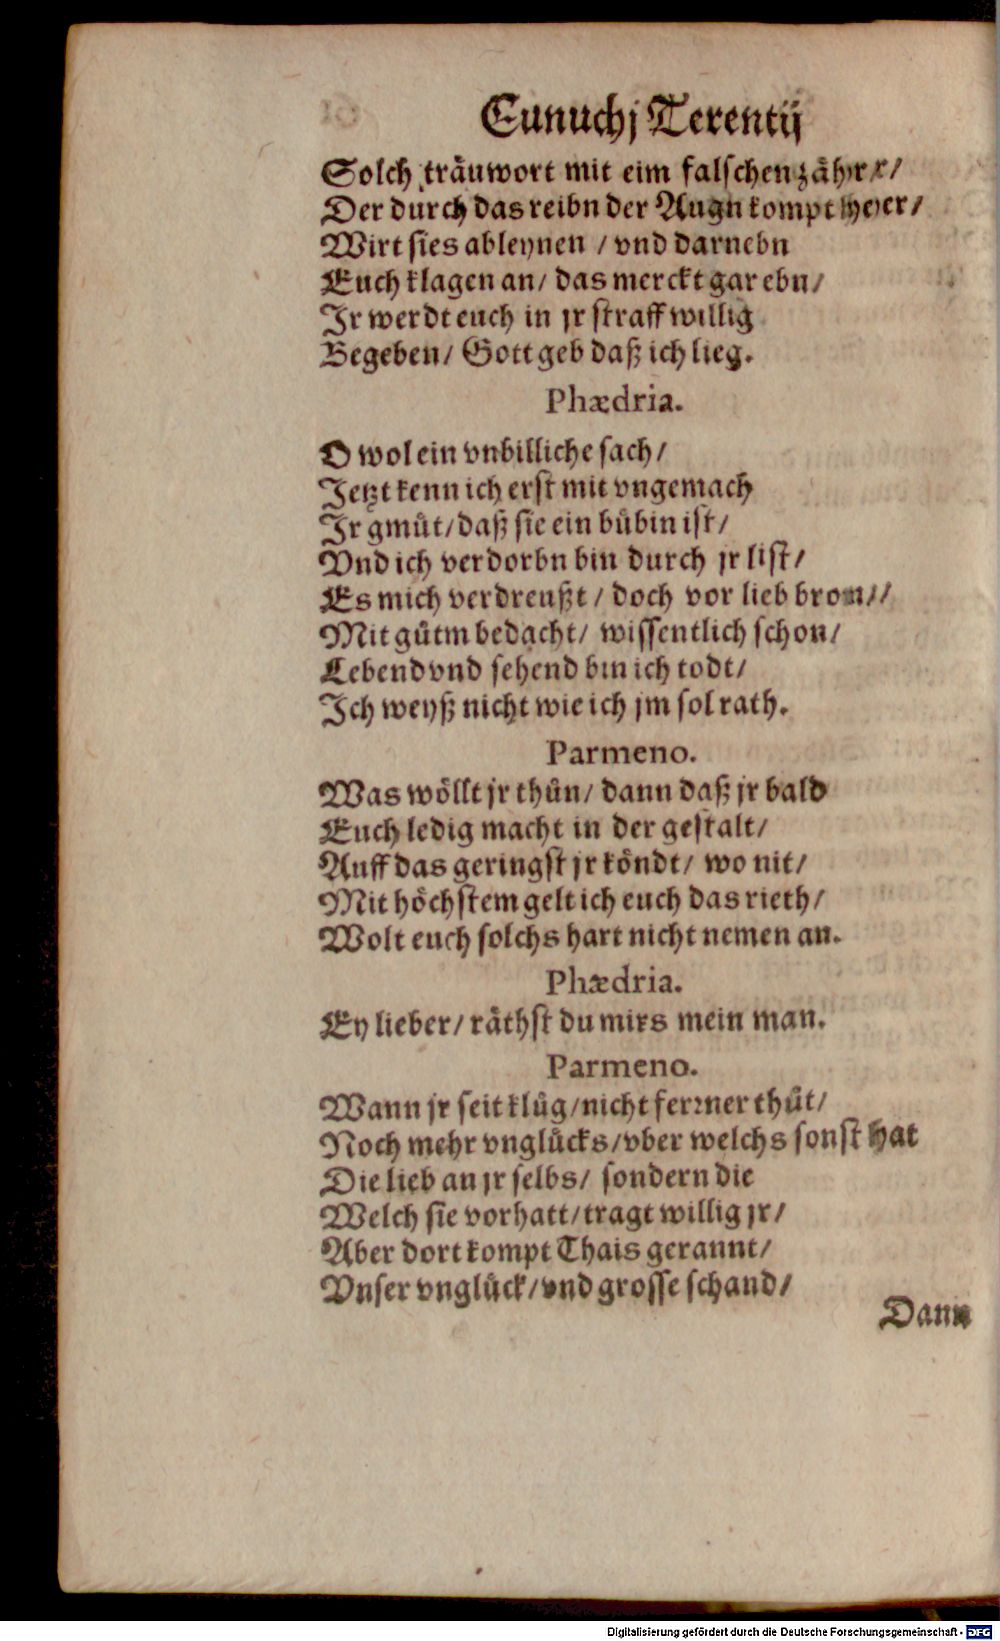 Eunuchj Terentij
Solch träuwort mit eim falschen zäher/
Der durch das reibn der Augn kompt
Wirt sies ableynen / vnd darnebn
Euch klagen an/ das merckt gar ebn/
Jr werdt euch in jr straff willig
Begeben/ Gott geb daß ich lieg.
Phædria.
O wol ein vnbilliche sach/
Jetzt kenn ich erst mit vngemach
Jr gmüt/ daß sie ein bübin ist/
Vnd ich verdorbn bin durch jr list/
Es mich verdreußt / doch vor lieb bron//
Mit gůtm bedacht/ wissentlich schon/
Lebend vnd sehend bin ich todt/
Ich weyß nicht wie ich jm sol rath.
Parmeno.
Was wöllt jr thůn/ dann daß jr bald
Euch ledig macht in der gestalt/
Auff das geringst jr köndt/ wo nit/
Mit höchstem gelt ich euch das rieth/
Wolt euch solchs hart nicht nemen an.
Phædria.
Ey lieber/ räthst du mirs mein man.
Parmeno.
Wann jr seit klůg/ nicht ferrner thůt/
Noch mehr vnglücks/ vber welchs sonst hat
Die lieb an jr selbs/ sondern die
Welch sie vorhatt/ tragt willig jr/
Aber dort kompt Thais gerannt/
Vnser vnglück/ vnd grosse schand/
Dann
Digitalisierung gefördert durch die Deutsche Forschungsgemeinschaft - DFG